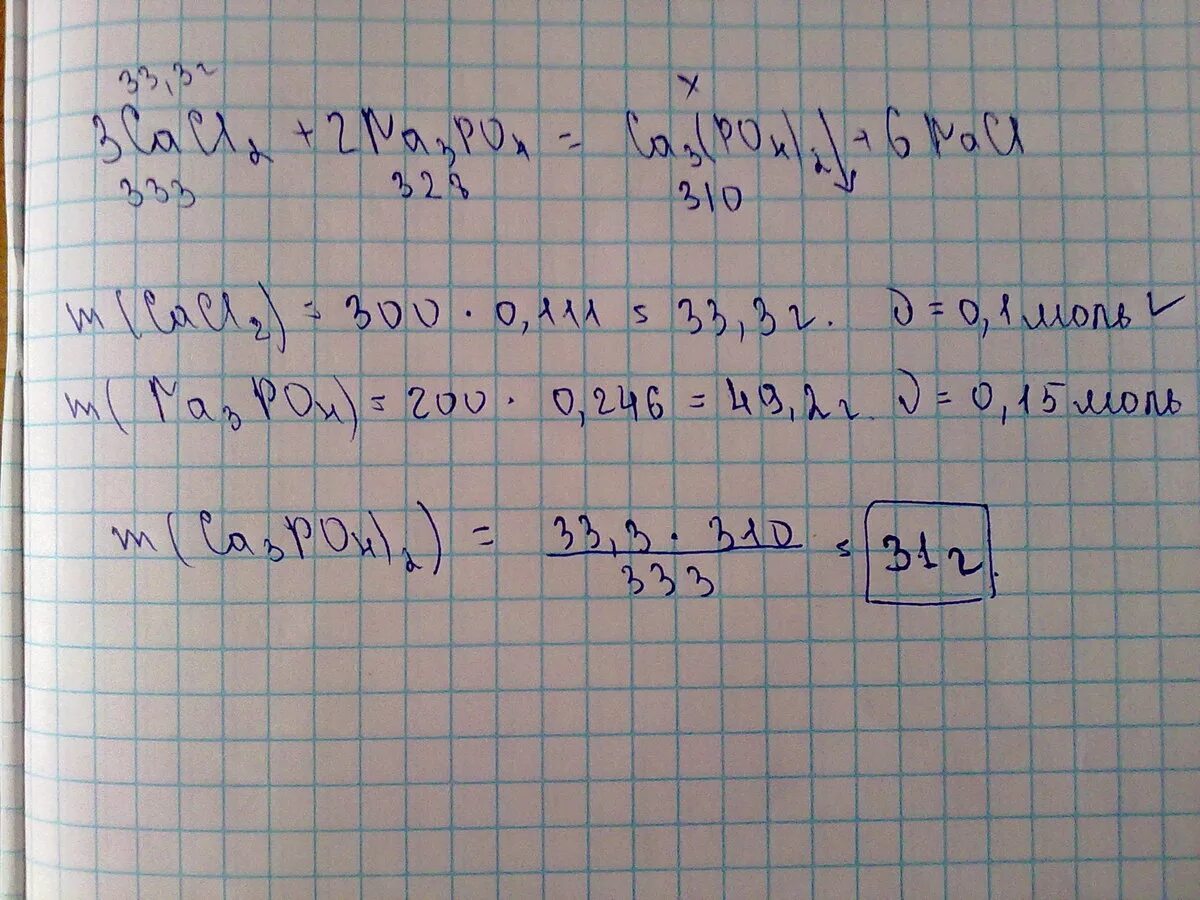 33,3г x
3CaCl₂ + 2Na₃PO₄ = Ca₃(PO₄)₂↓ + 6NaCl
333 328 310
m(CaCl₂) = 300 · 0,111 = 33,3г. ν = 0,1 моль ✓
m(Na₃PO₄) = 200 · 0,246 = 49,2г. ν = 0,15 моль
m(Ca₃PO₄)₂) = 33,3 · 310 / 333 = 31г.